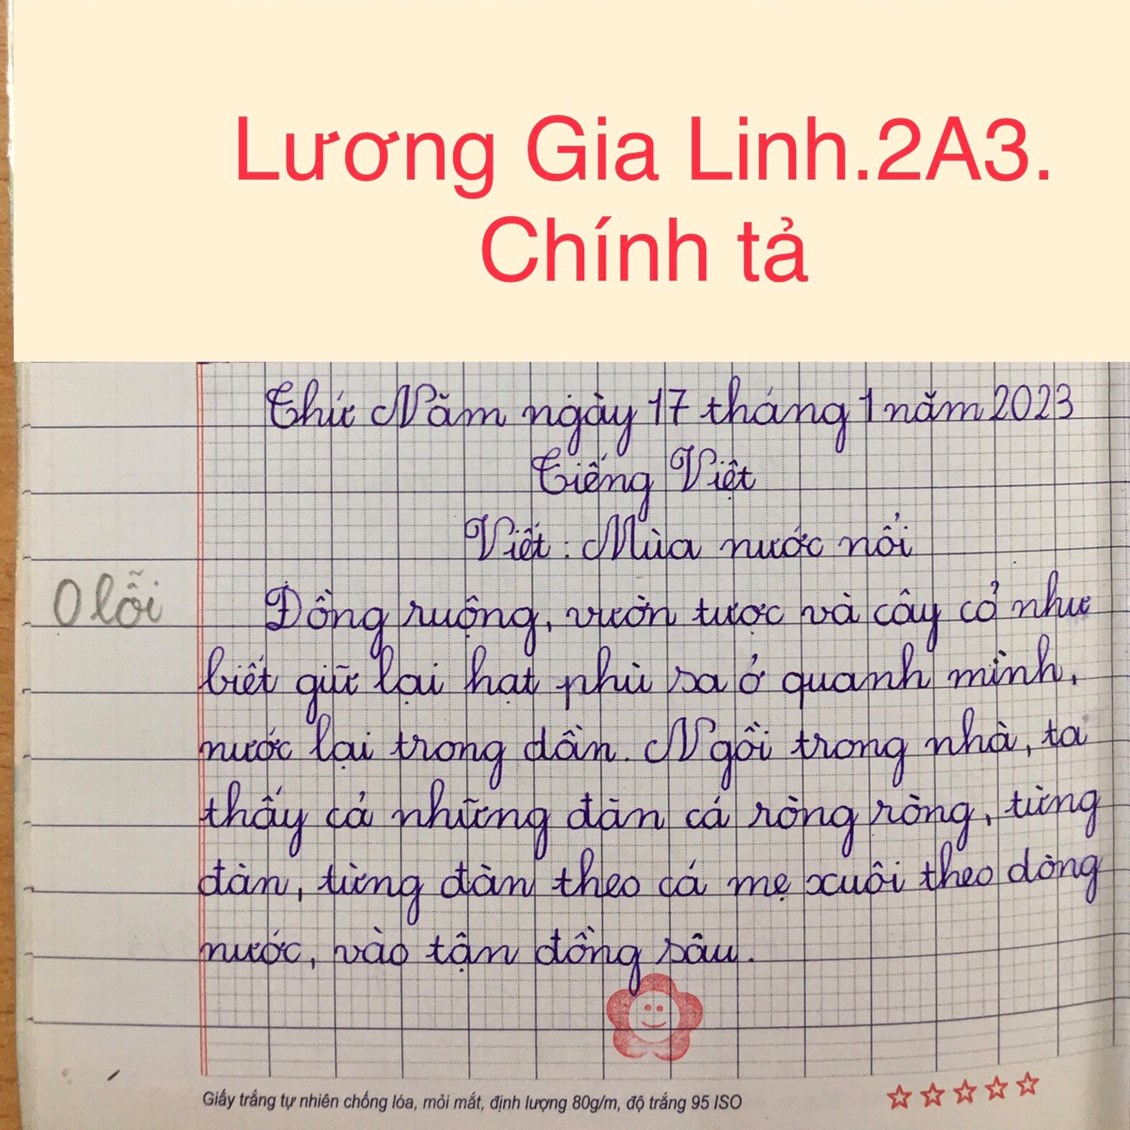 Lương Gia Linh.2A3.
Chính tả
Thứ Năm ngày 17 tháng 1 năm 2023
Tiếng Việt
Viết: Mùa nước nổi
0 lỗi
Đồng ruộng, vườn tược và cây cỏ như
biết giữ lại hạt phù sa ở quanh mình,
nước lại trong dần. Ngồi trong nhà, ta
thấy cả những đàn cá ròng ròng, từng
đàn, từng đàn theo cá mẹ xuôi theo dòng
nước, vào tận đồng sâu.
Giấy trắng tự nhiên chống lóa, mỏi mắt, định lượng 80g/m, độ trắng 95 ISO